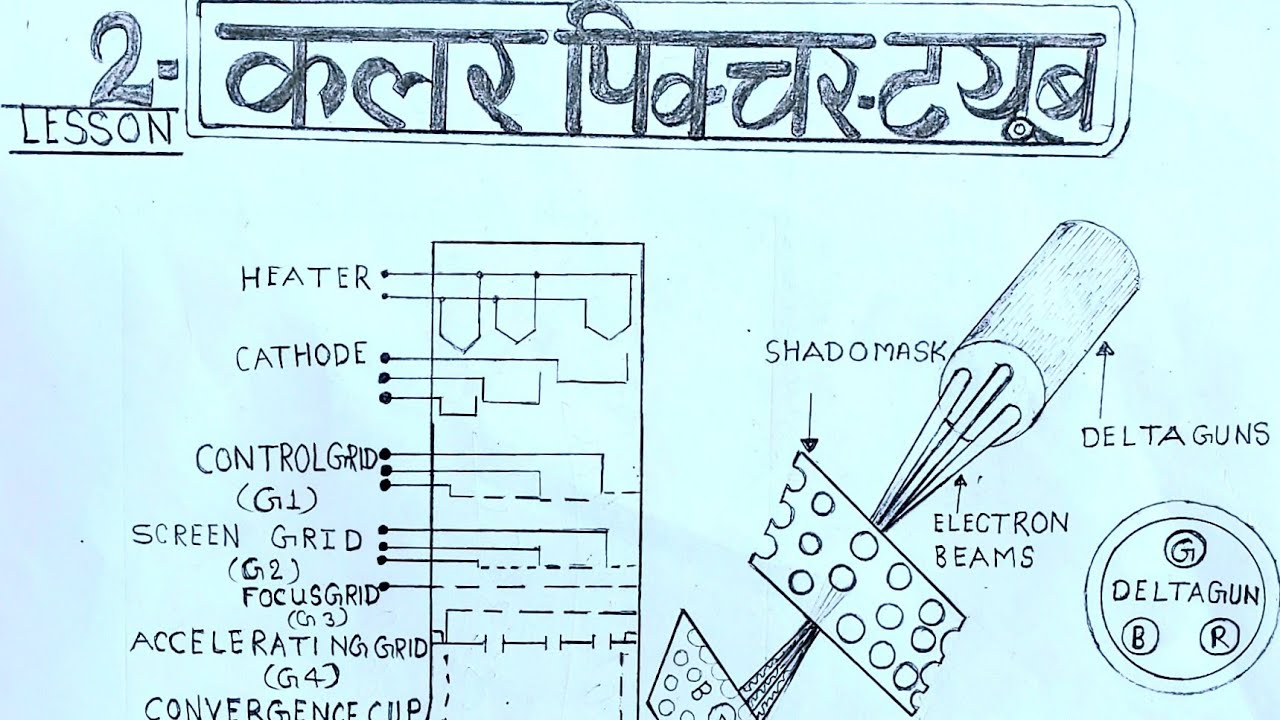 2-
LESSON
कलर पिक्चर-टयूब
HEATER
CATHODE
CONTROLGRID
(G1)
SCREEN GRID
(G2)
FOCUSGRID
(G3)
ACCELERATINGGRID
(G4)
CONVERGENCE CUP
SHADOMASK
DELTAGUNS
ELECTRON
BEAMS
G
DELTAGUN
B R
B